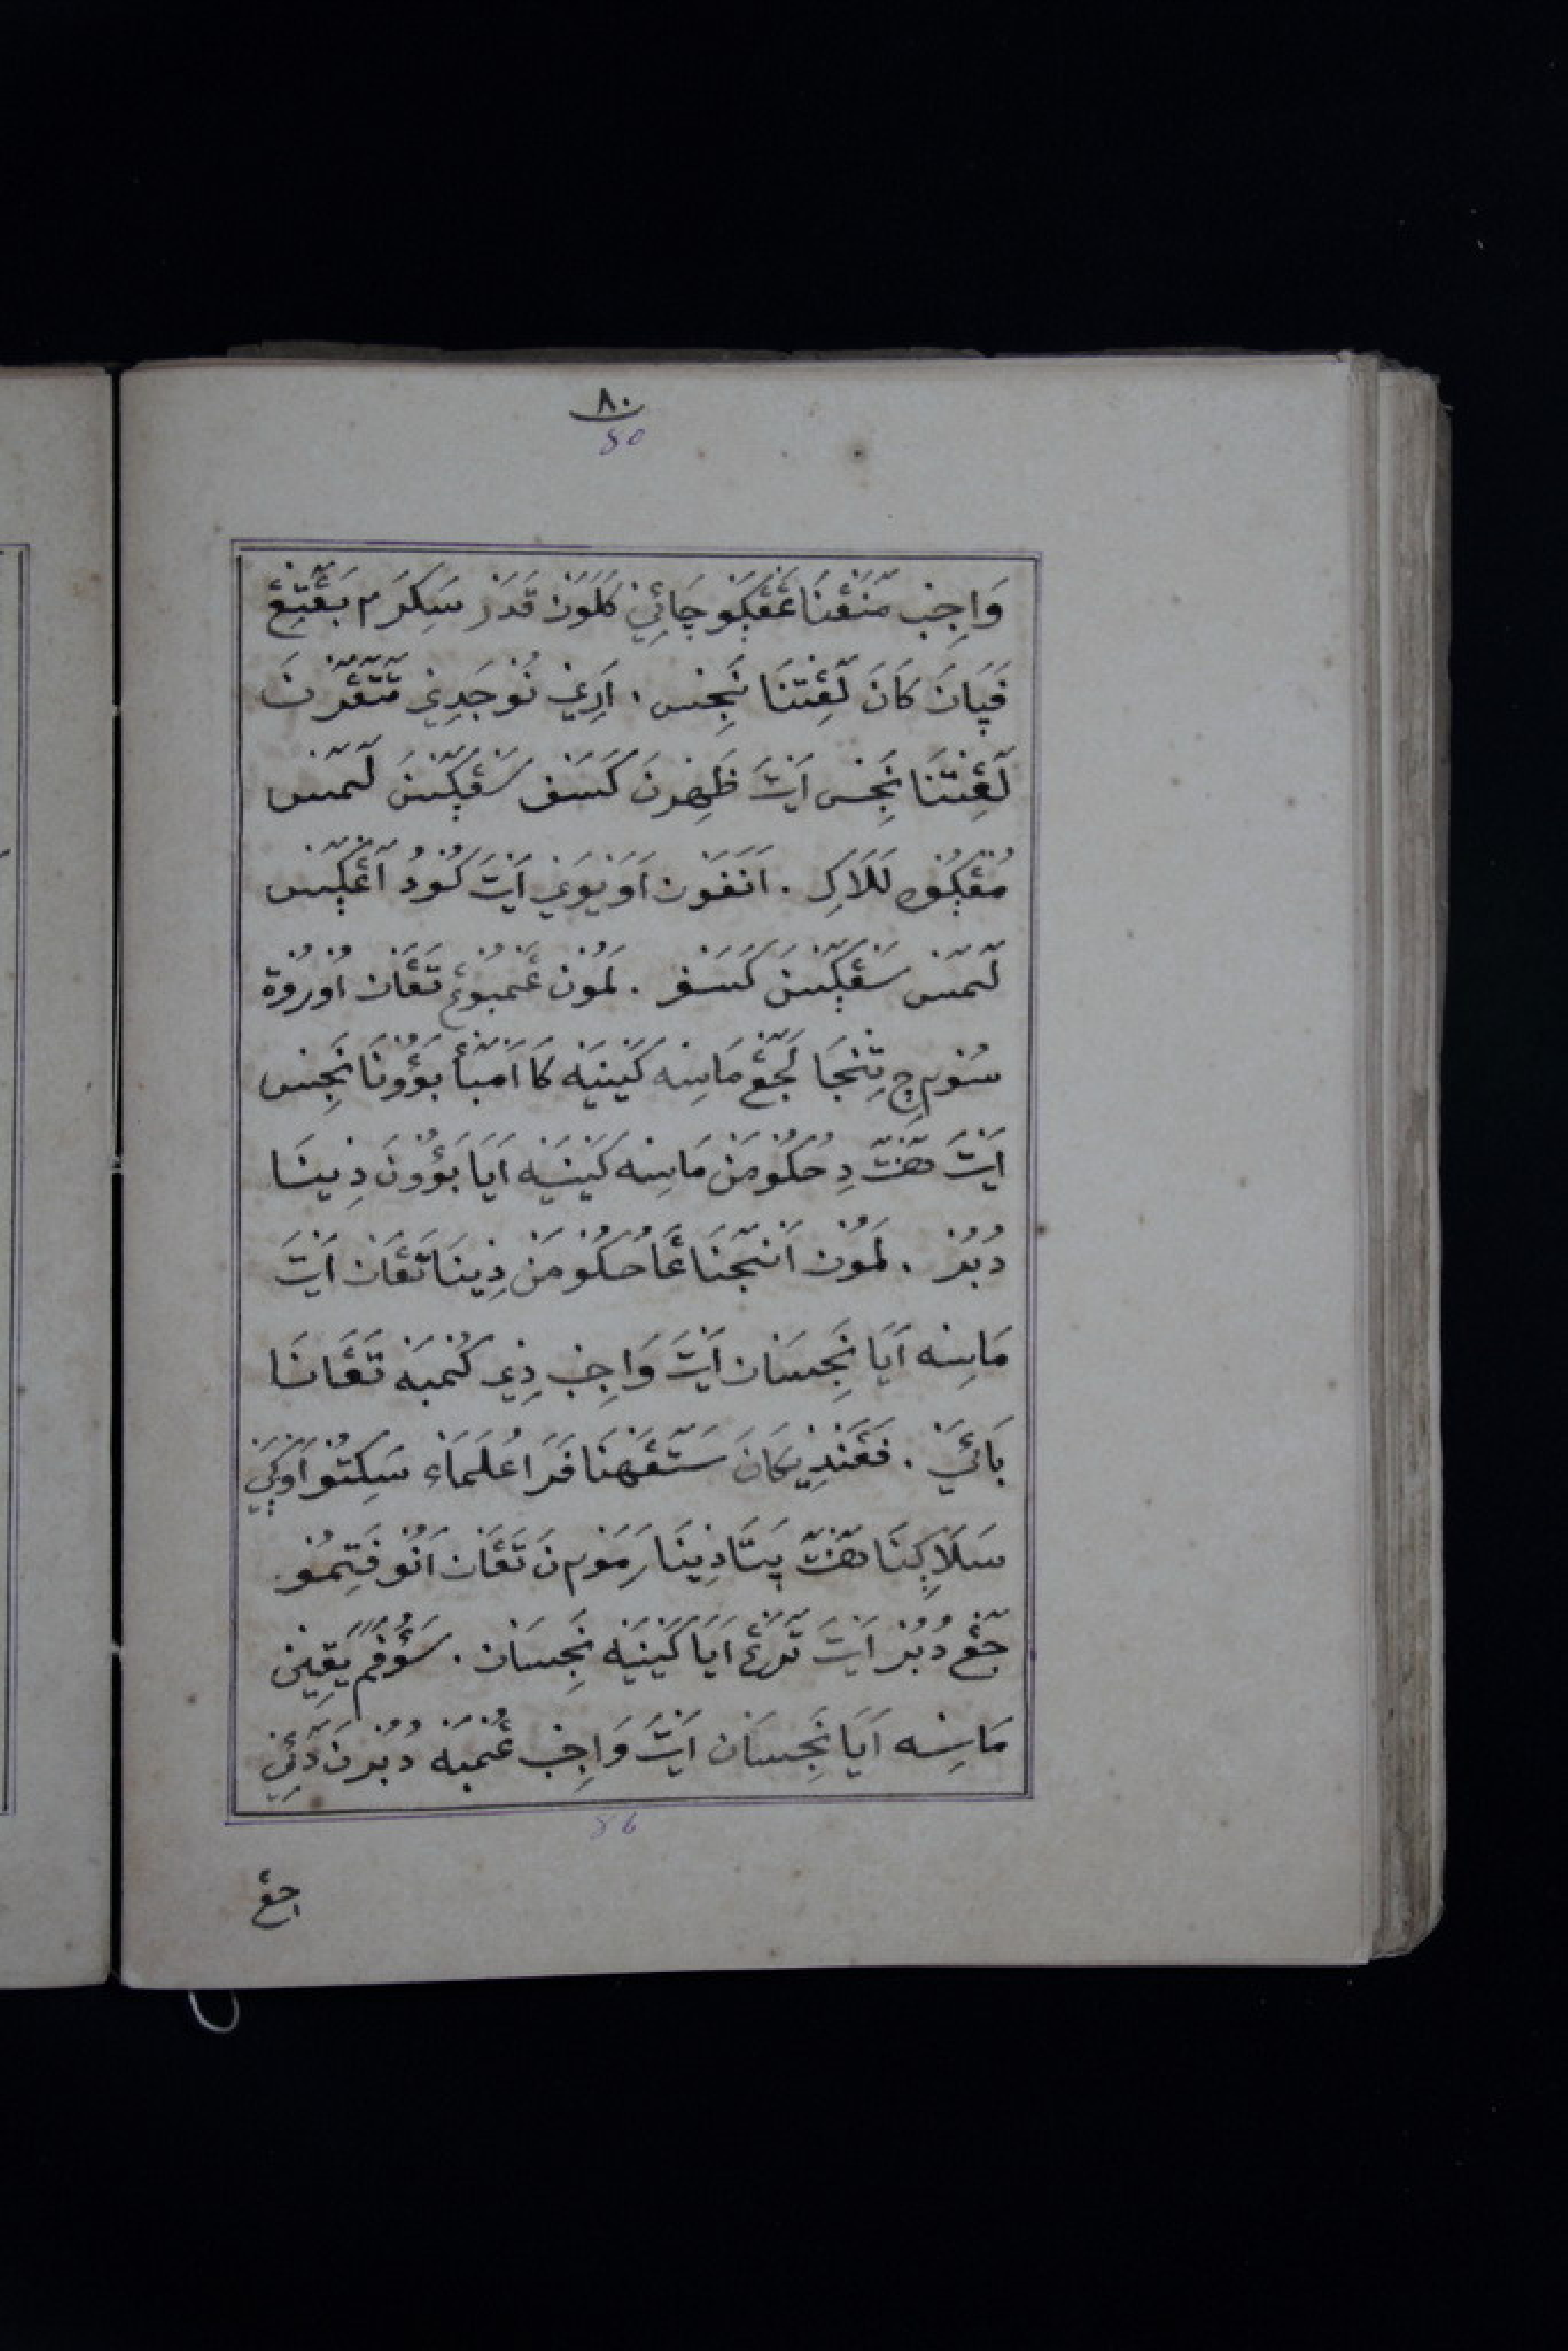 ٨٠
80
وَاجِب مَنَڠْنَا غَڠْݢَوَ چَائِيْ كَلَوَن قَدَر سَكِرَم بَڠَتِڠْ
فَيَانَ كَانَ لَڠِتْنَا نَجِس ، اَرِيْ نُوجَدِيْ مَتَڠَرْنَ
لَڠِتْنَا نَجِس اَيْتَ ظَهِرْنَ كَسَف سَڠْݢَسَن لَمَس
مُڠْݢُه لَلَاكِ . اَنَفَون اَوَيَوَيْ اَيْتَ كُودُ اَڠْݢَس
لَمَس سَڠْݢَسَن كَسَف . لَمُون غَمْبُوڠْ تَڠَان اُورُوة
سُوم جِ تِنْجَا لَجَڠْ مَاسِه كَيَنيَه كَا اَمْبَأ بَوُونَا نَجِس
اَيْتَ هَنْتَ دِحُكُومَن مَاسِه كَيَنيَه اَيَا بَوُونَ دِينَا
دُبُر . لَمُون اَنجَنَا غَا حُكُومَن دِينَا تَڠَان اَيْتَ
مَاسِه اَيَا نَجِسَان اَيْتَ وَاجِب دِيْ كُمْبَه تَڠَانَا
بَائَيْ . فَڠَنْدِيكَانَ سَتَڠَهْنَا فَرَا عُلَمَاء سَكِتُو اَوݢَيْ
سَلَاكِنَا هَنْتَ پِسَّا دِينَا رَمَوم نَ تَڠَان اَنُو فَتِمُو
جَڠْ دُبُر اَيْتَ تَوَرَڠْ اَيَا كَيَنيَه نَجِسَان . سَؤُفَمَ يَقِيْن
مَاسِه اَيَا نَجِسَان اَيْتَ وَاجِب غُمْبَه دُبُرْنَ دَئِيْ
86
جڠ